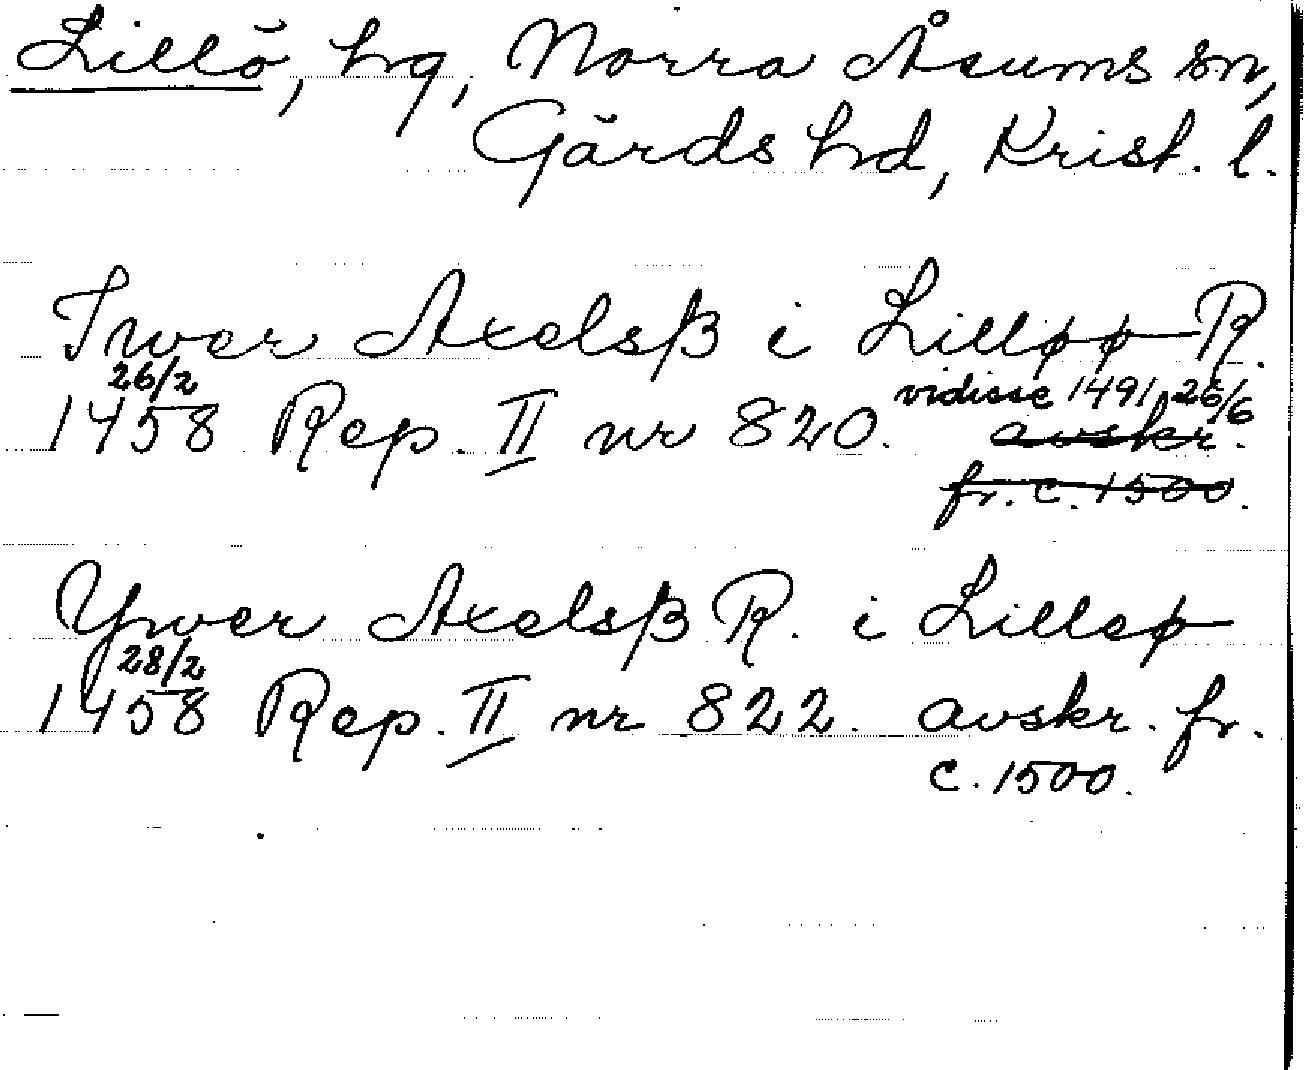 Lillö, hg, Norra Åsums sn,
Gärds hd, Krist. l.
Iwer Axelsß i Lilløø R.
26/2
1458 Rep. II nr 820. vidisse 1491 26/6
avskr.
fr. c. 1500.
Ywer Axelsß R. i Lilleø
28/2
1458 Rep. II nr 822. avskr. fr.
c. 1500.